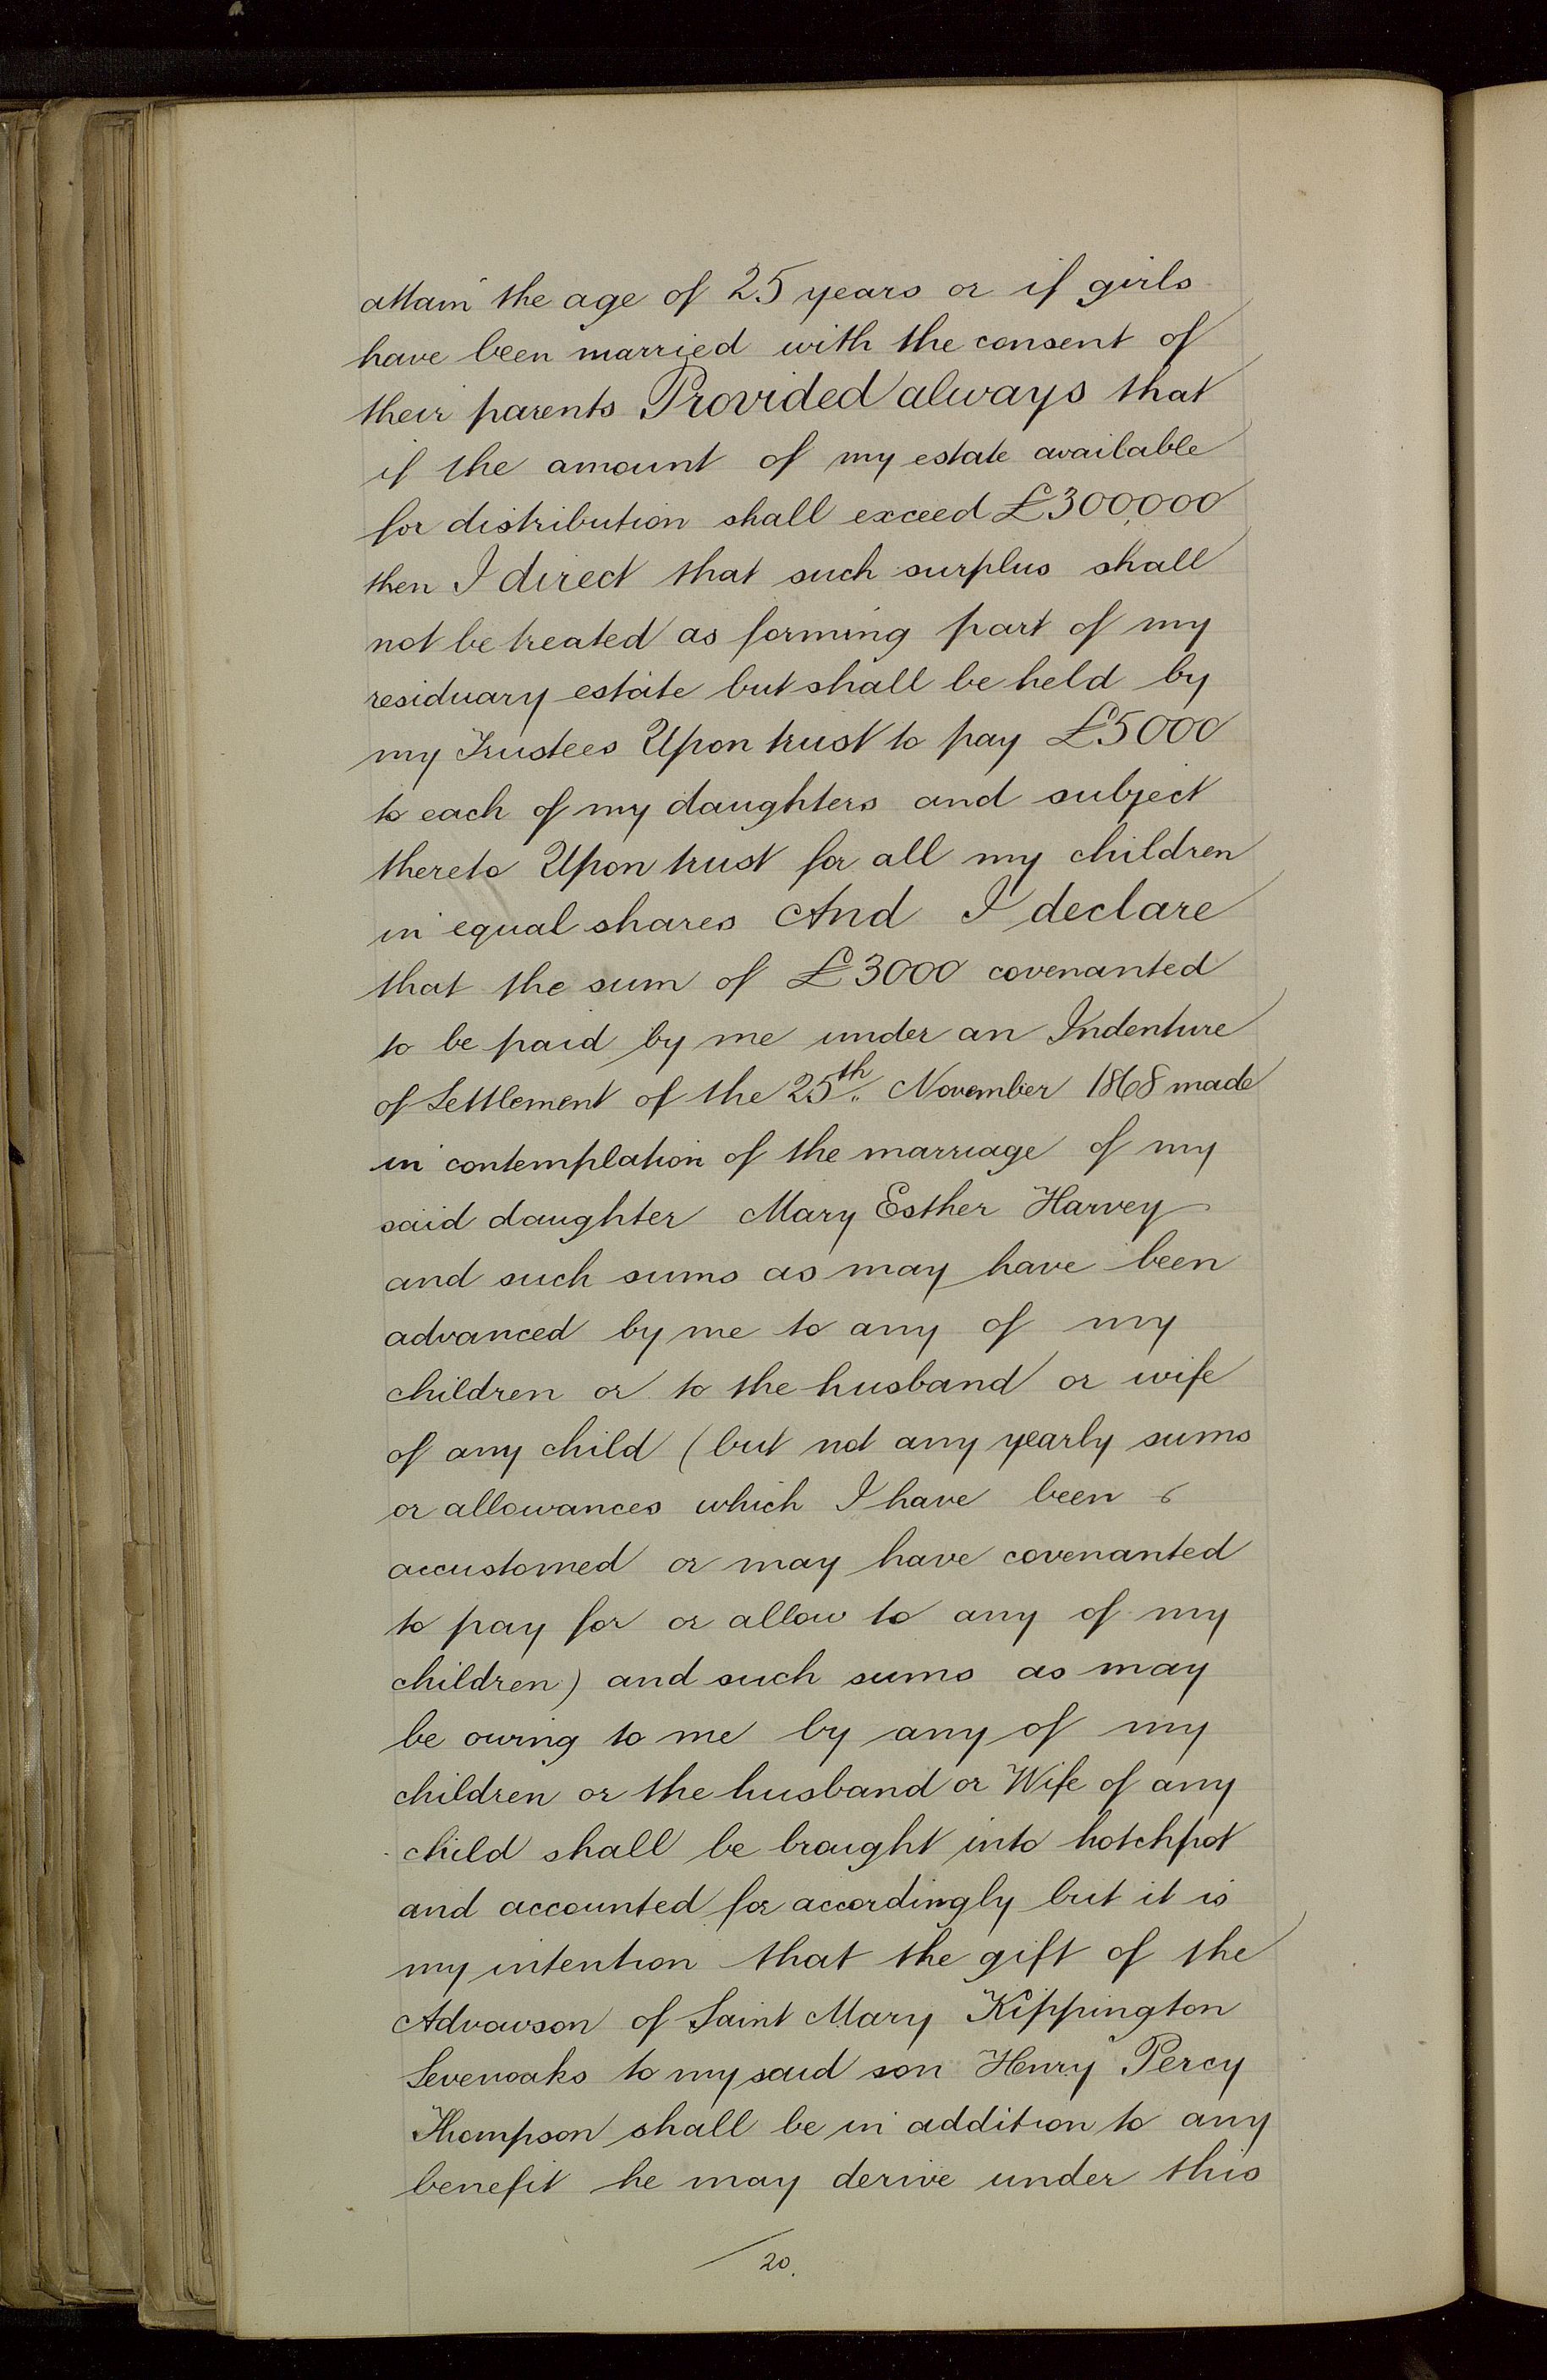 attain the age of 25 years or if girls
have been married with the consent of
their parents Provided always that
if the amount of my estate available
for distribution shall exceed £300,000
then I direct that such surplus shall
not be treated as forming part of my
residuary estate but shall be held by
my Trustees Upon trust to pay £5000
to each of my daughters and subject
thereto Upon trust for all my children
in equal shares And I declare
that the sum of £3000 covenanted
to be paid by me under an Indenture
of Settlement of the 25th November 1868 made
in contemplation of the marriage of my
said daughter Mary Esther Harvey
and such sums as may have been
advanced by me to any of my
children or to the husband or wife
of any child (but not any yearly sums
or allowances which I have been
accustomed or may have covenanted
to pay for or allow to any of my
children) and such sums as may
be owing to me by any of my
children or the husband or Wife of any
child shall be brought into hotchpot
and accounted for accordingly but it is
my intention that the gift of the
Advowson of Saint Mary Kippington
Sevenoaks to my said son Henry Percy
Thompson shall be in addition to any
benefit he may derive under this
20.